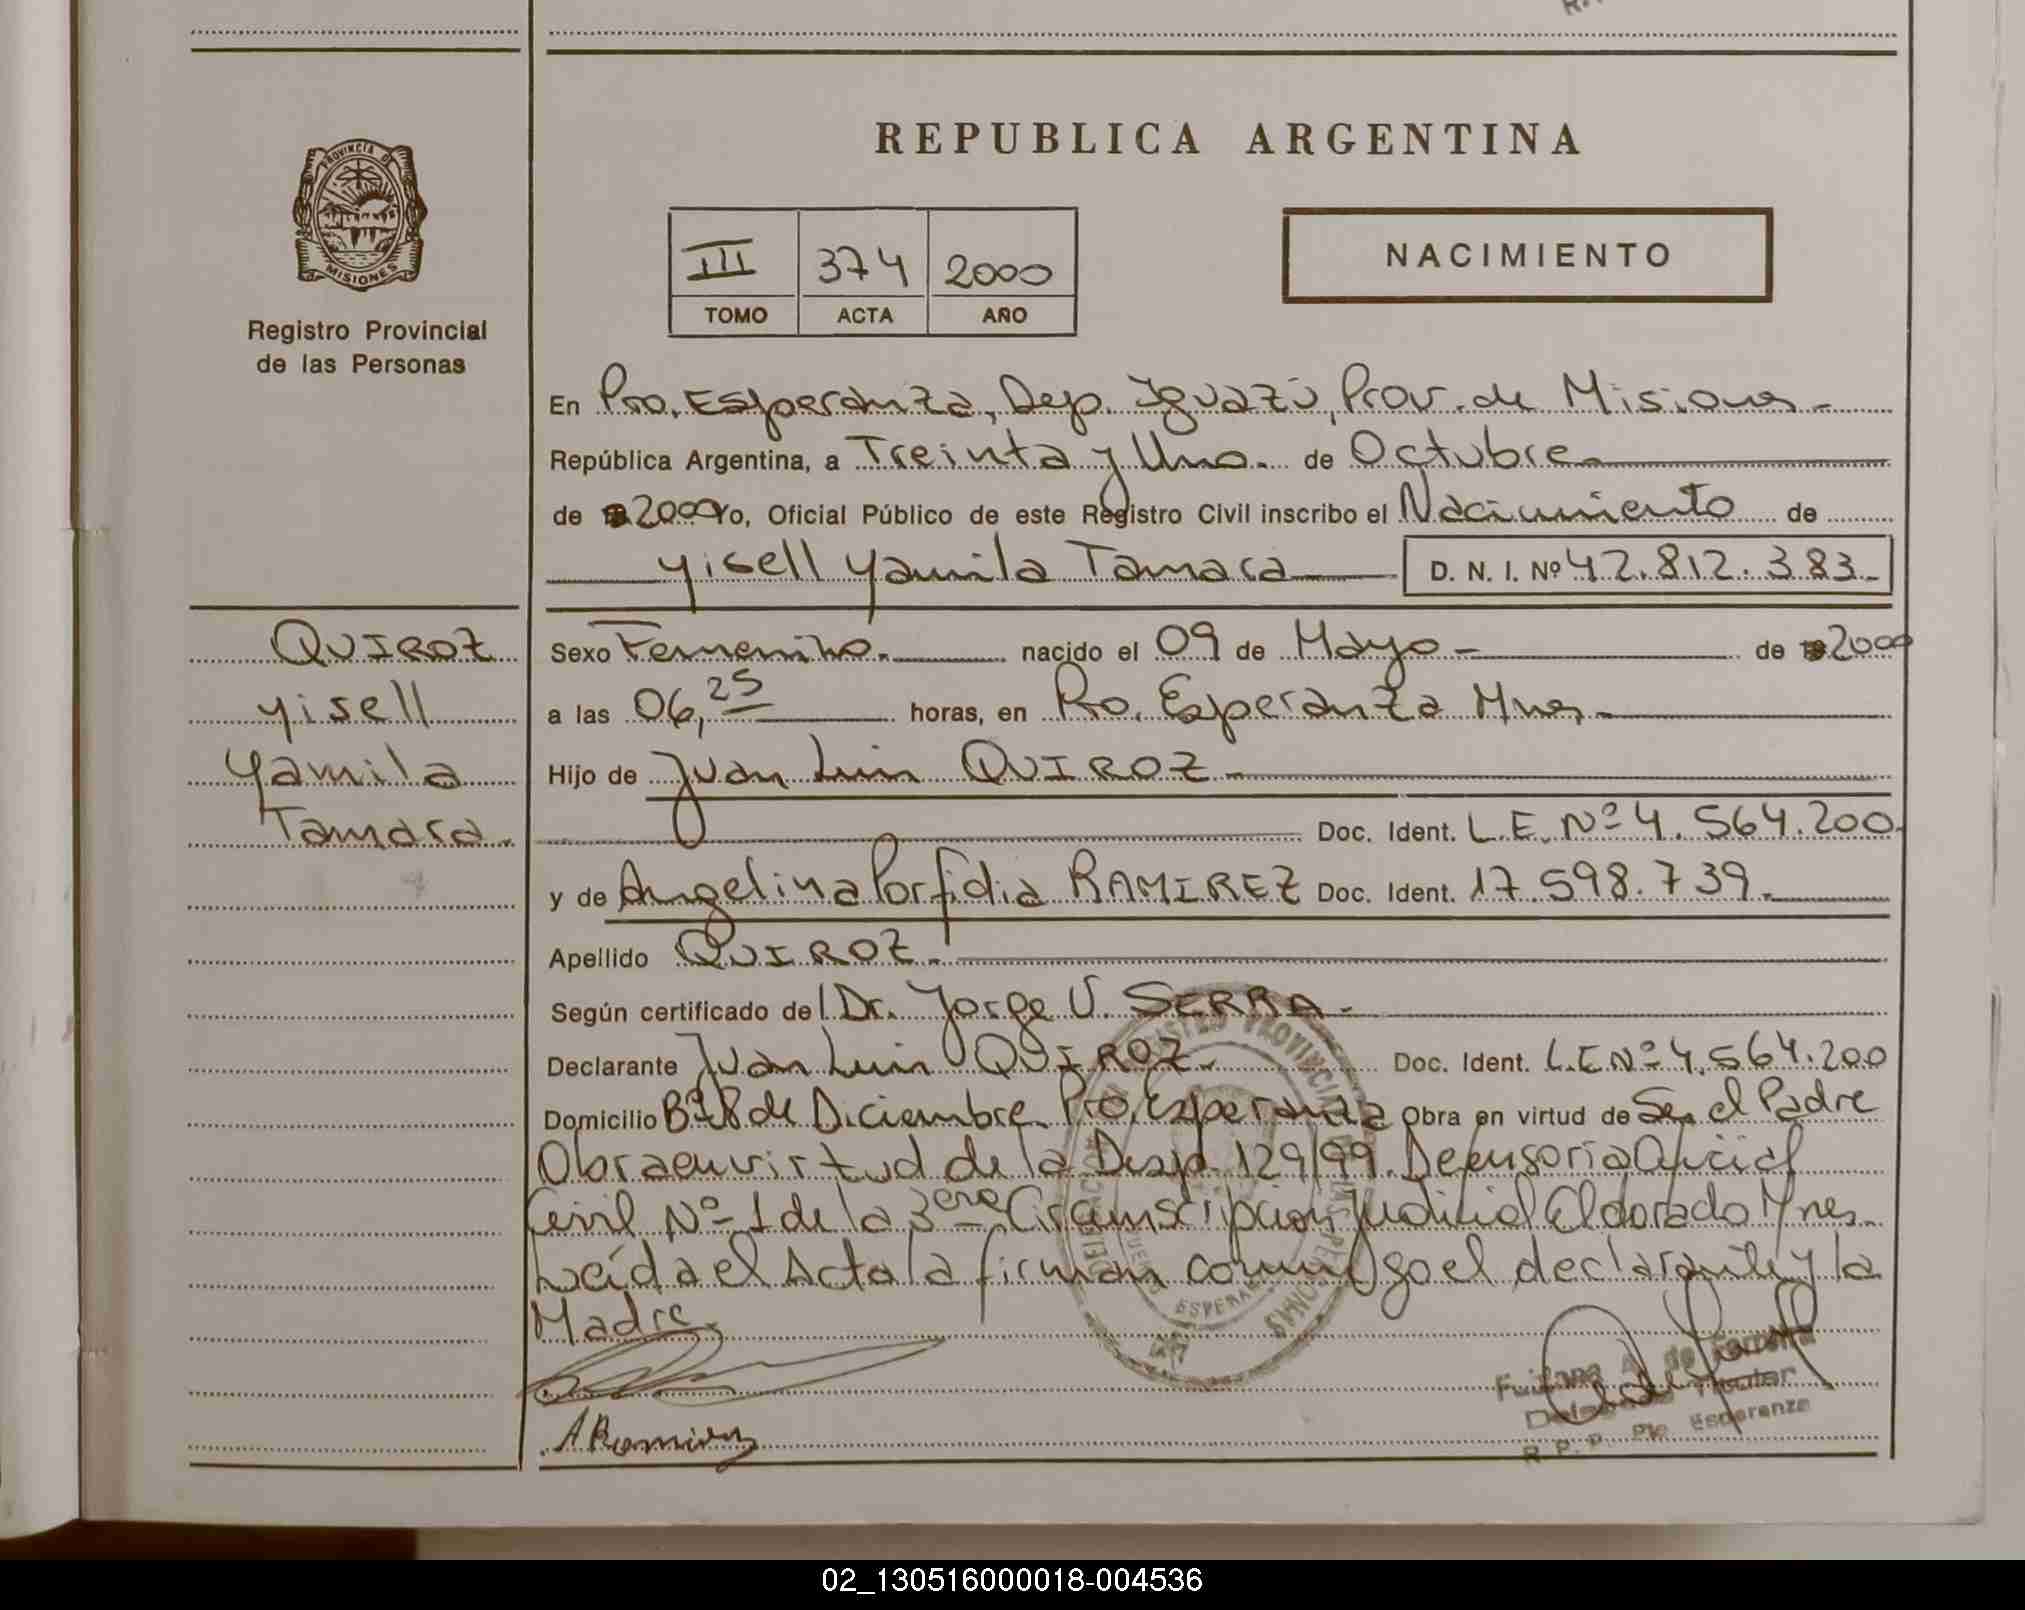 REPUBLICA ARGENTINA
PROVINCIA D
MISIONES
Registro Provincial
de las Personas
III 374 2000
TOMO ACTA AÑO
NACIMIENTO
En Pto. Esperanza, Dep. Iguazú, Prov. de Misiones
República Argentina, a Treinta y Uno. de Octubre
de 2000 Yo, Oficial Público de este Registro Civil inscribo el Nacimiento de
Yisell Yamila Tamara D. N. I. Nº 42.812.383
QUIROZ
Yisell
Yamila
Tamara.
Sexo Femenino. nacido el 09 de Mayo de 2000
a las 06,25 horas, en Pto. Esperanza Mnes
Hijo de Juan Luis QUIROZ
Doc. Ident. L.E. Nº 4.564.200
y de Angelina Porfidia RAMIREZ Doc. Ident. 17.598.739.
Apellido QUIROZ.
Según certificado del Dr. Jorge V. SERRA
Declarante Juan Luis QUIROZ Doc. Ident. L.E Nº 4.564.200
Domicilio Bº 8 de Diciembre Pto. Esperanza Obra en virtud de Ser el Padre
Obra en virtud de la Disp. 129/99. Defensoria Oficial
Civil Nº 1 de la 3era Circunscripcion Judicial Eldorado Mnes
Leída el Acta la firman conmigo el declarante y la
Madre.
A Ramirez
de Ferreira
Titular
R. P. P. Pto Esperanza
02_130516000018-004536